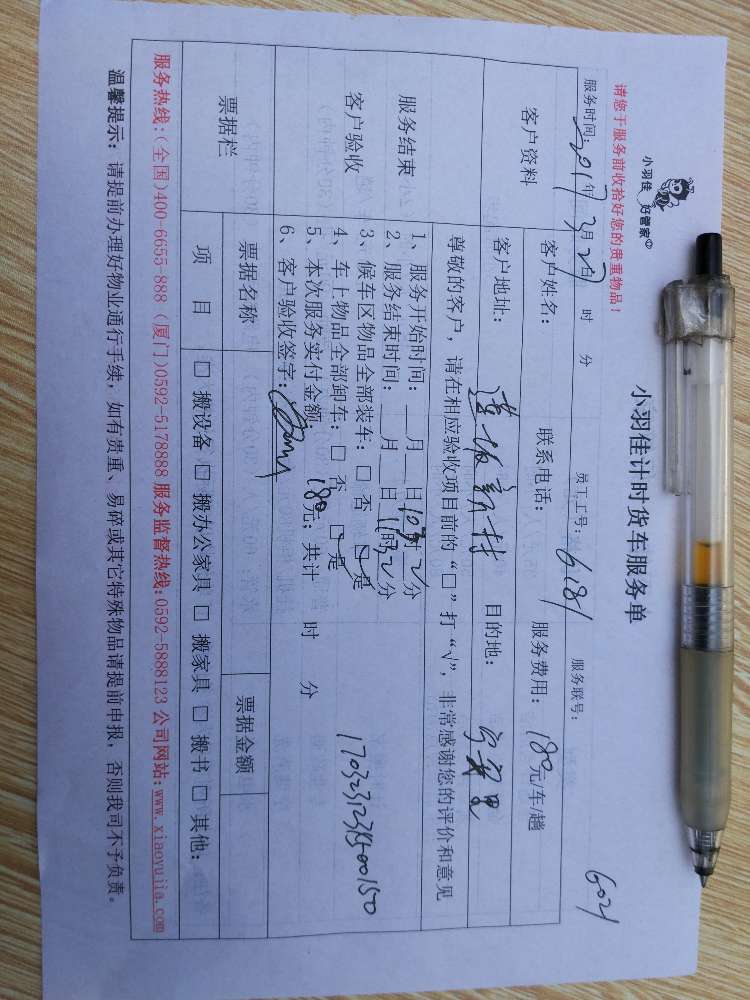 小羽佳 好管家
小羽佳计时货车服务单
请您于服务前收拾好您的贵重物品！
6021
服务时间：2017年3月27日 时 分 员工工号：6181 服务联号：
客户资料
客户姓名： 联系电话： 服务费用：180元/车/趟
客户地址： 莲坂新村 目的地：
尊敬的客户，请在相应验收项目前的“□”打“√”，非常感谢您的评价和意见
服务结束
客户验收
1、服务开始时间：__月__日10时32分
2、服务结束时间：__月__日11时32分
3、候车区物品全部装车：□ 否 □ 是
4、车上物品全部卸车：□ 否 □ 是
5、本次服务实付金额 180元；共计 时 分
6、客户验收签字：
票据栏
票据名称 票据金额
项 目 □ 搬设备 □ 搬办公家具 □ 搬家具 □ 搬书 □ 其他：
服务热线：(全国)400-6655-888 (厦门)0592-5178888 服务监督热线：0592-5888123 公司网站：www.xiaoyujia.com
温馨提示：请提前办理好物业通行手续，如有贵重、易碎或其它特殊物品请提前申报，否则我司不予负责。